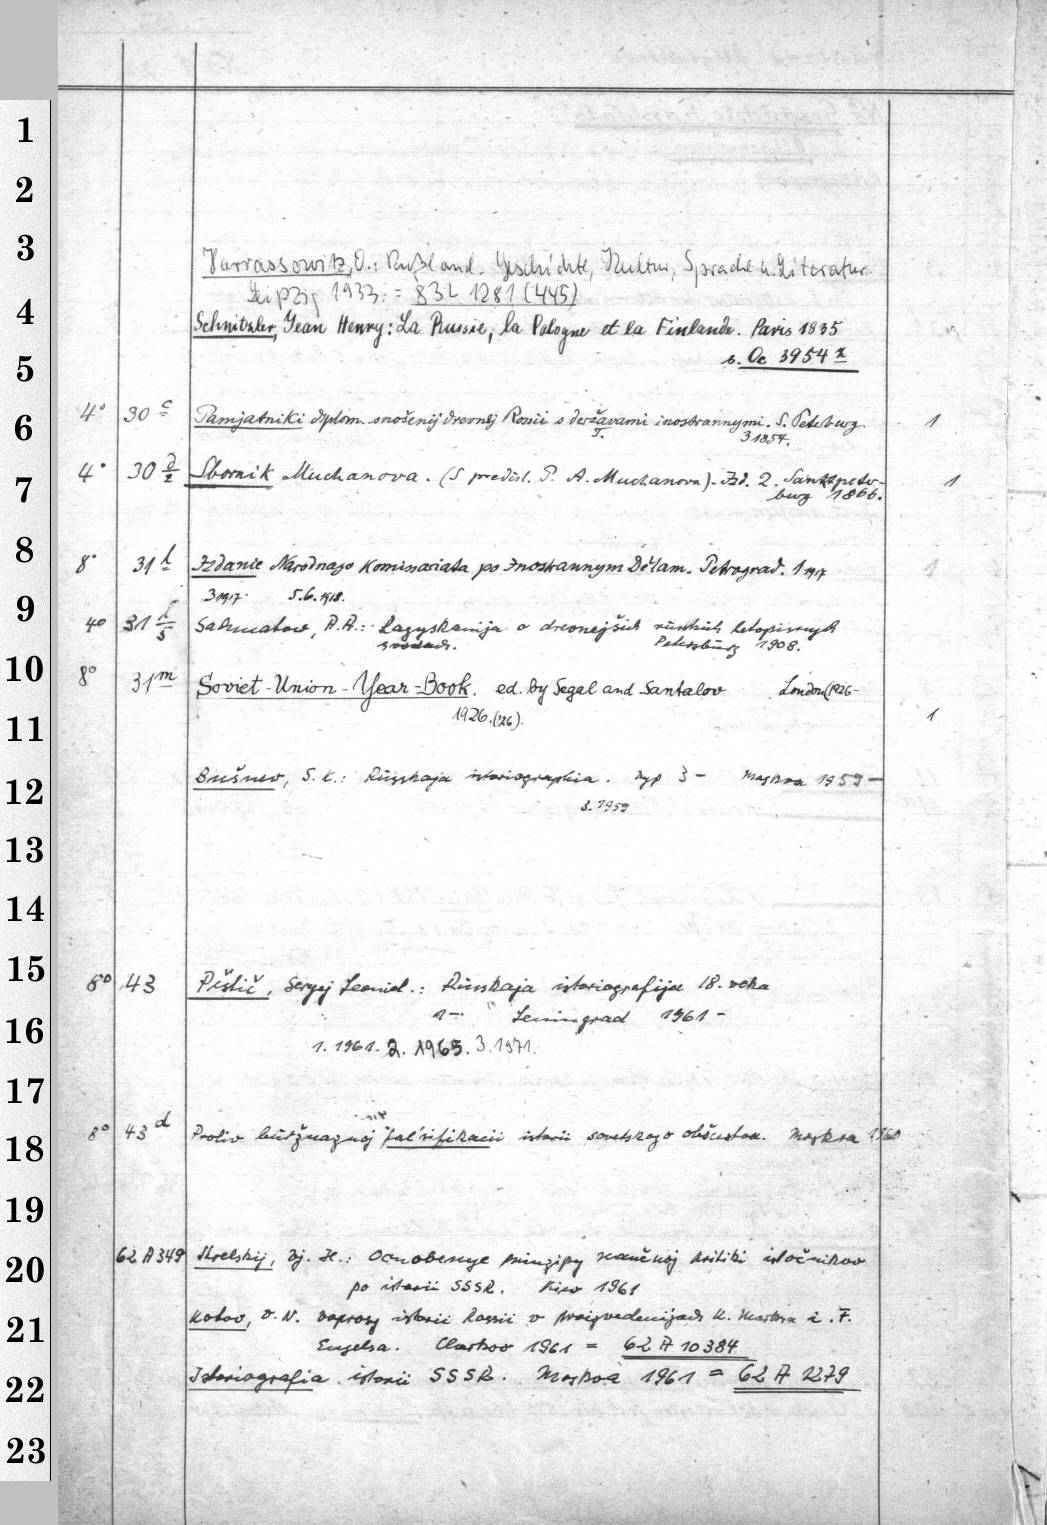 Harrassowitz, O.: Rußland. Geschichte, Kultur, Sprache u. Literatur.
Leipzig 1933. = 83L 1281 (445)
Schnitzler, Jean Henry: La Russie, la Pologne et la Finlande. Paris 1835
s. Oc 3954 x
4° 30 c Pamjatniki diplom. snošenij drevnej Rossii s deržavami inostrannymi. S. Petersburg 1
3 1854.
4° 30 d/2 Sbornik Muchanova. (S predisl. P. A. Muchanova). Izd. 2. Sanktpeter- 1
burg 1866.
8° 31 l Izdanie Narodnago Komissariata po Inostrannym Dělam. Petrograd. 1 1917 1
3 1917. 5.6. 1918.
4° 31 l/5 Sachmatow, A. A.: Razyskanija o drevnejšich russkich letopisnych
svodach. Petersburg 1908.
8° 31 m Soviet-Union-Year-Book. ed. by Segal and Santalov London (1926-
1926. ('26). 1
Bušuev, S. K.: Russkaja istoriographia. Vyp 3 - Moskva 1959 -
3. 1959
8° 43 Pištič, Sergej Leonid.: Russkaja istoriografija 18. veka
1 - Leningrad 1961 -
1. 1961. 2. 1965. 3. 1971.
8° 43 d Protiv buržuaznoj fal'sifikacii istorii sovetskogo obščestva. Moskva 1960
62 A 349 Strelskij, Vj. Il.: Osnobenye prinzipy naučnoj kritiki istočnikov
po istorii SSSR. Kiev 1961
Kotov, V. N. Voprosy istorii Rossii v proizvedenijach K. Marksa i. F.
Engelsa. Charkov 1961 = 62 A 10 384
Istoriografia istorii SSSR. Moskva 1961 = 62 A 1279
1
2
3
4
5
6
7
8
9
10
11
12
13
14
15
16
17
18
19
20
21
22
23